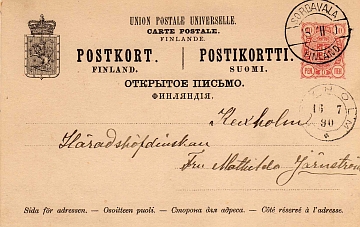 UNION POSTALE UNIVERSELLE.
CARTE POSTALE.
FINLANDE.
POSTKORT. POSTIKORTTI.
FINLAND. SUOMI.
ОТКРЫТОЕ ПИСЬМО.
ФИНЛЯНДІЯ.
SORDAVALA
FINLAND
PEN. 10 PEN.
16 7
90
Kexholm
Häradshöfdinskan
Fru Mathilda Järnström
Sida för adressen. — Osoitteen puoli. — Сторона для адреса. — Côté réservé à l'adresse.